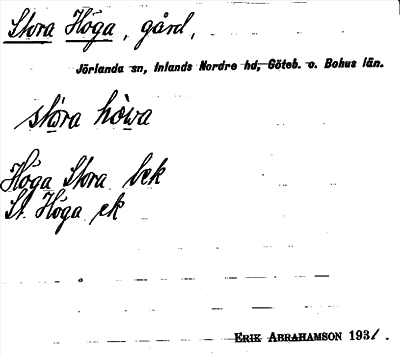 Stora Höga, gård,
Jörlanda sn, Inlands Nordre hd, Göteb. o. Bohus län.
stóra hòwa
Höga Stora bek
St. Höga ek
ERIK ABRAHAMSON 1931.